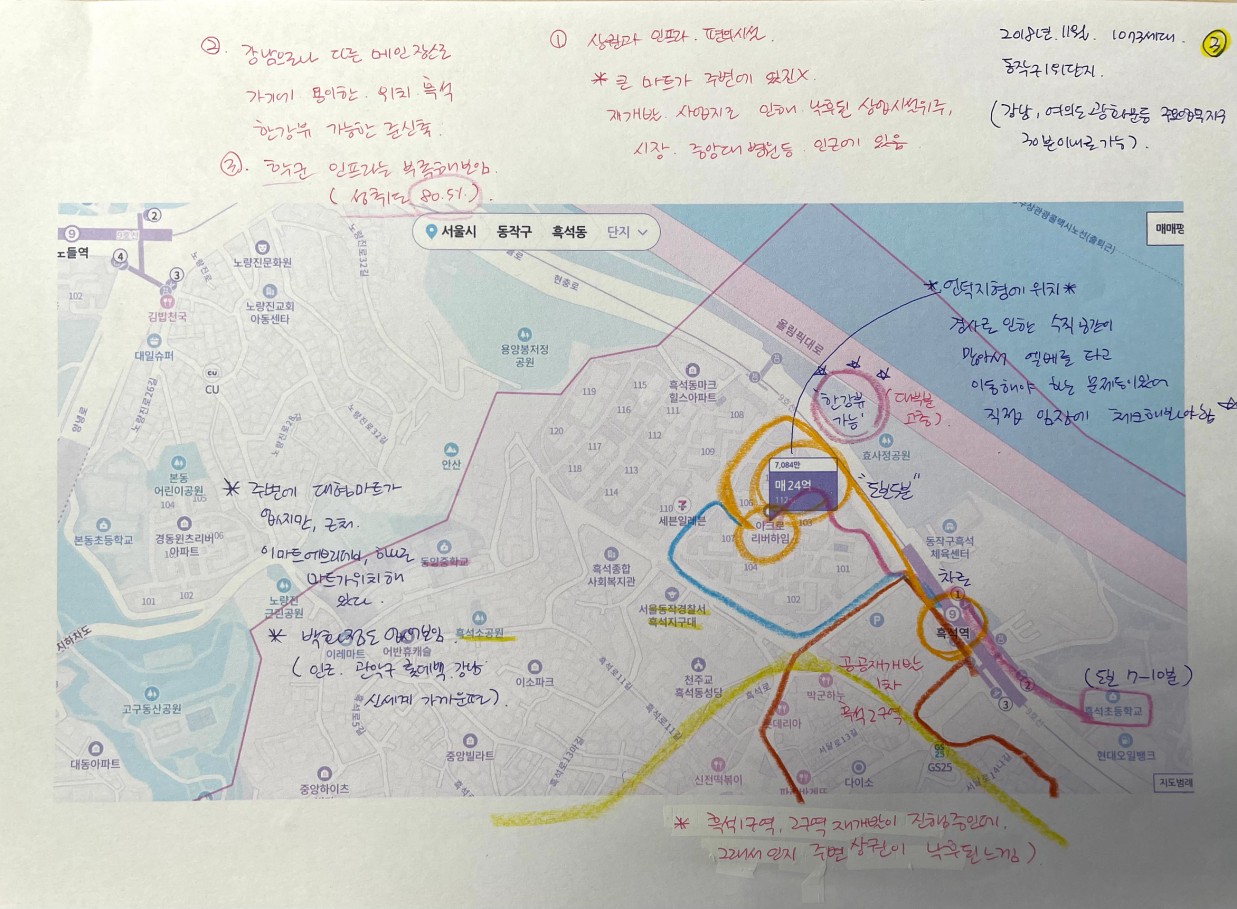 ② 강남으로나 다른 메인 장소로
가기에 용이한 위치 흑석
한강뷰 가능한 준신축.
③. 학군 인프라는 부족해보임.
(성취도 80.5%).
① 상권과 인프라. 편의시설.
* 큰 마트가 주변에 있진X.
재개발 사업지로 인해 낙후된 상업시설위주,
시장. 중앙대병원등. 인근에 있음
2018년.11월. 1073세대.
동작구1위단지.
(강남, 여의도, 광화문등 주요업무지구
30분이내로 가능).
3
서울시 동작구 흑석동 단지
매매평
9
2
노들역
9호선
4
3
노량진로
노량진로32길
102
김밥천국
노량진문화원
노량진교회
아동센타
대일슈퍼
CU
CU
양녕로
노량진로26길
노량진로28길
노량진로32길
현충로
용양봉저정
공원
올림픽대로
9호선
* 언덕지형에 위치 *
경사로 인한 수직공간이
많아서 엘베를 타고
이동해야 하는 문제등이있어
직접 임장에 체크해봐야함 ☆
'한강뷰
가능'
(대부분
고층).
효사정공원
119
115
흑석동마크
힐스아파트
116
111
108
120
112
109
117
118
113
114
110
안산
7,084만
매 24억
112
106
103
107
104
101
102
아크로
리버하임
"도보5분"
세븐일레븐
본동
어린이공원
104
105
본동초등학교
경동윈츠리버
아파트
101
102
노량진
근린공원
* 주변에 대형마트가
없지만, 근처.
이마트에브리데이, 하나로
마트가 위치해
있다.
* 백화점도 없어보임.
(인근. 관악구 롯데백. 강남
신세계 가까운편).
동일중학교
흑석종합
사회복지관
서울동작경찰서
흑석지구대
흑석소공원
이레마트
어반휴캐슬
동작구흑석
체육센터
차로
1
9
흑석역
2
3
P
(도보 7-10분)
흑석초등학교
현대오일뱅크
지도범례
지하차도
고구동산공원
대동아파트
흑석로5길
중앙빌라트
중앙하이츠
이소파크
흑석로13마길
흑석로11길
흑석로11길
천주교
흑석동성당
흑석로
공공재개발
1차
흑석2구역
박군하누
롯데리아
서달로13길
신전떡볶이
다이소
GS
25
GS25
서달로14나길
* 흑석1구역, 2구역 재개발이 진행중인데.
그래서인지 주변 상권이 낙후된느낌).